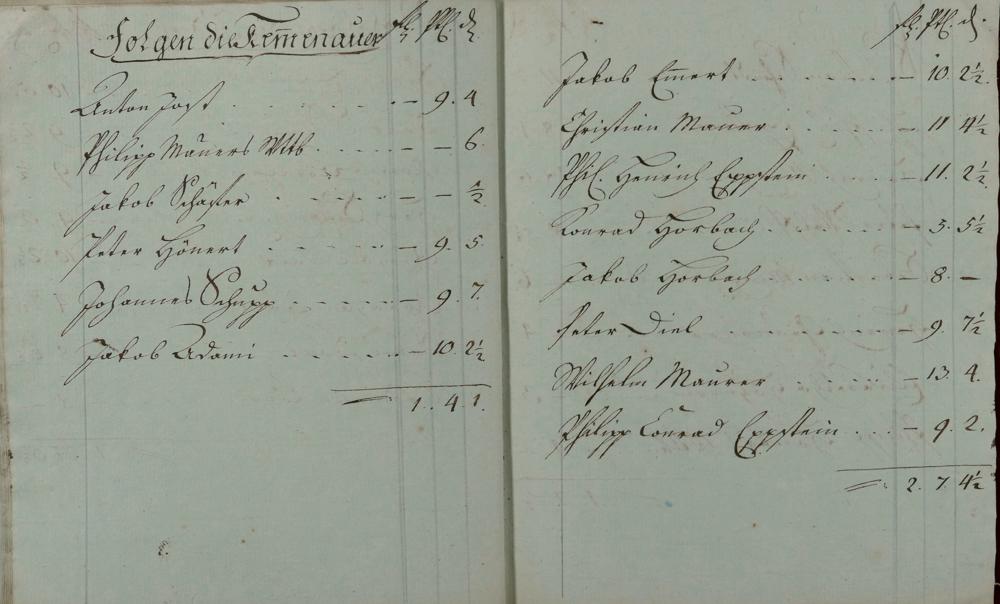 Folgen die Kem̅enauer fl. Ptz. d.
Anton Jost . . . . . - 9. 4
Philipp Maurers Wttb . . . . . - - 6.
Jakob Schäfer . . . . . - - 1/2
Peter Hönert . . . . . - 9. 5
Johannes Schupp . . . . . - 9. 7.
Jakob Adami . . . . . - 10. 2 1/2
1. 4. 1.
fl. Ptz. d.
Jakob Em̅ert . . . . . - 10. 2 1/2
Christian Maurer . . . . . - 11 4 1/2
Phil. Henrich Eppstein . . . . . - 11. 2 1/2
Konrad Horbach . . . . . - 5. 5 1/2
Jakob Horbach . . . . . - 8. -
Peter Diel . . . . . - 9. 7 1/2
Wilhelm Maurer . . . . . - 13. 4.
Philipp Conrad Eppstein . . . - 9. 2.
2. 7. 4 1/2